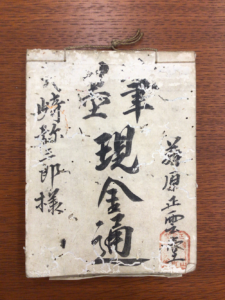 筆墨
現金通
藤原正雲堂
崎弥三郎様